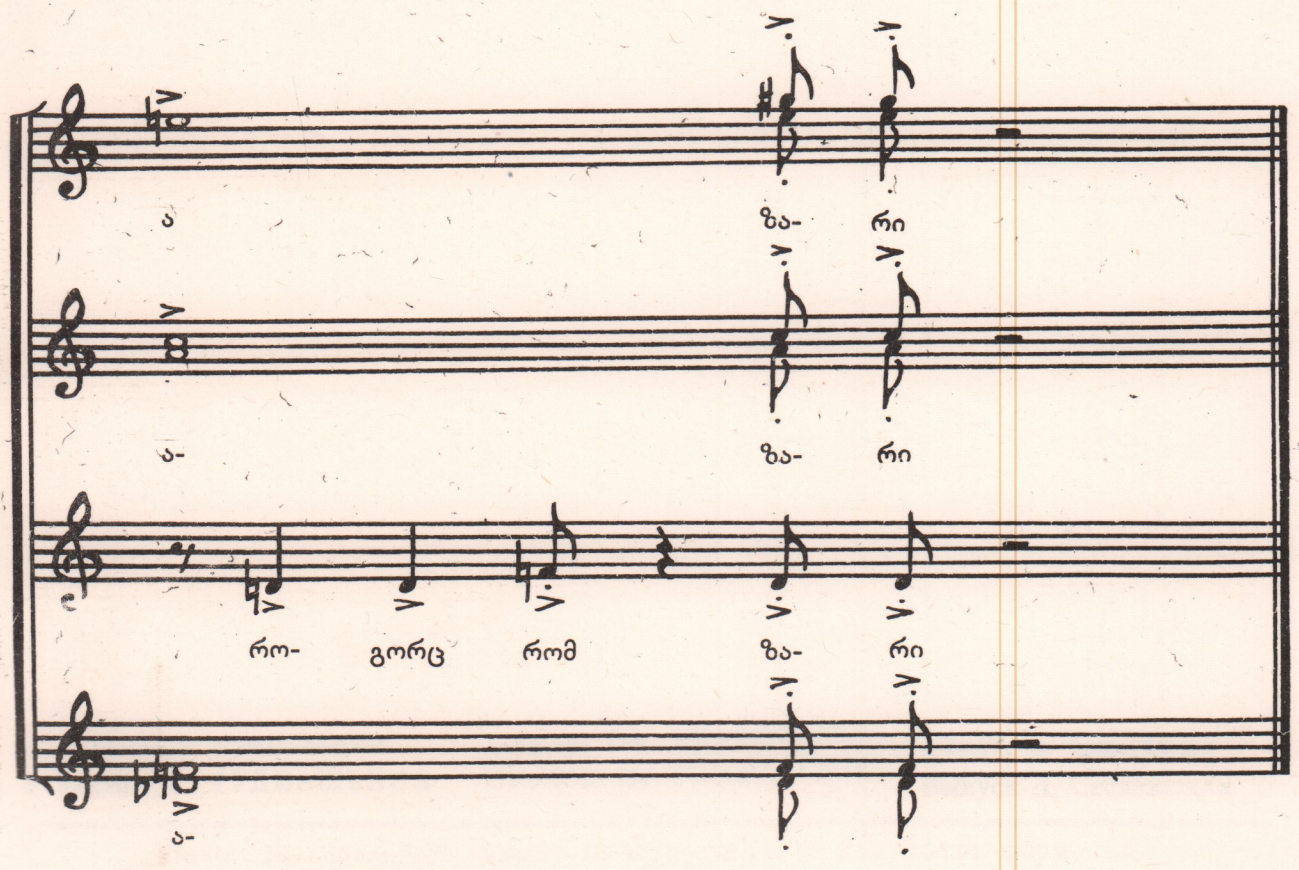 ა ზა- რი
ა- ზა- რი
რო- გორც რომ ზა- რი
ა-